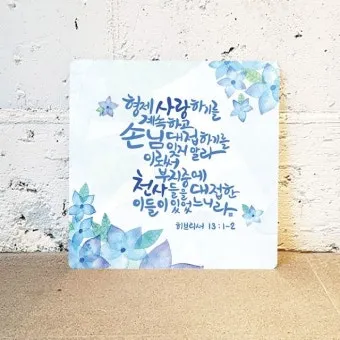 형제 사랑하기를
계속하고
손님 대접하기를
잊지 말라
이로써
부지중에
천사들을 대접한
이들이 있었느니라.
히브리서 13:1-2